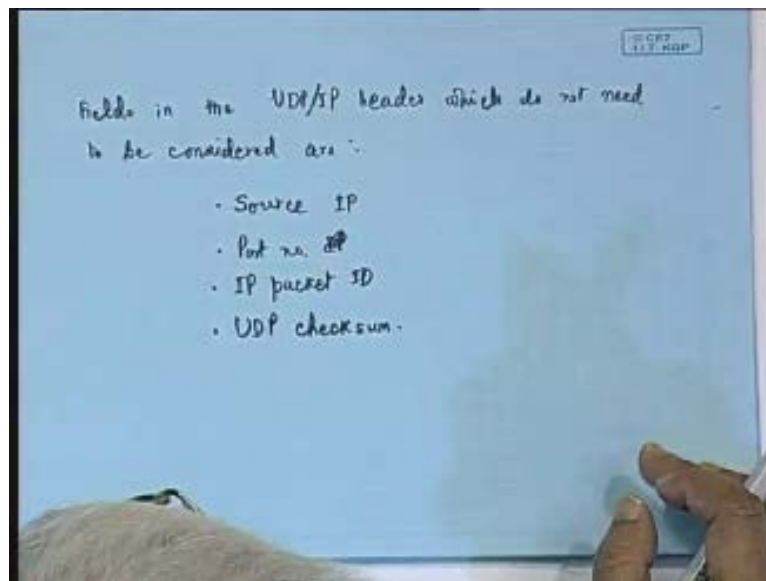 © CET
I.I.T. KGP
Fields in the UDP/IP header which do not need
to be considered are :
· Source IP
· Port no.
· IP packet ID
· UDP checksum.